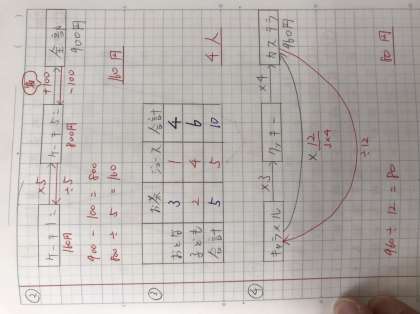 ②
ケーキ1コ ×5 ケーキ5コ +100 全部
÷5 -100
160円 800円 900円
900 - 100 = 800
800 ÷ 5 = 160
160円
③
お茶 ジュース 合計
おとな 3 1 4
子ども 2 4 6
合計 5 5 10
4人
④
キャラメル ×3 クッキー ×4 カステラ
960円
×12
3×4
÷12
960 ÷ 12 = 80
80円